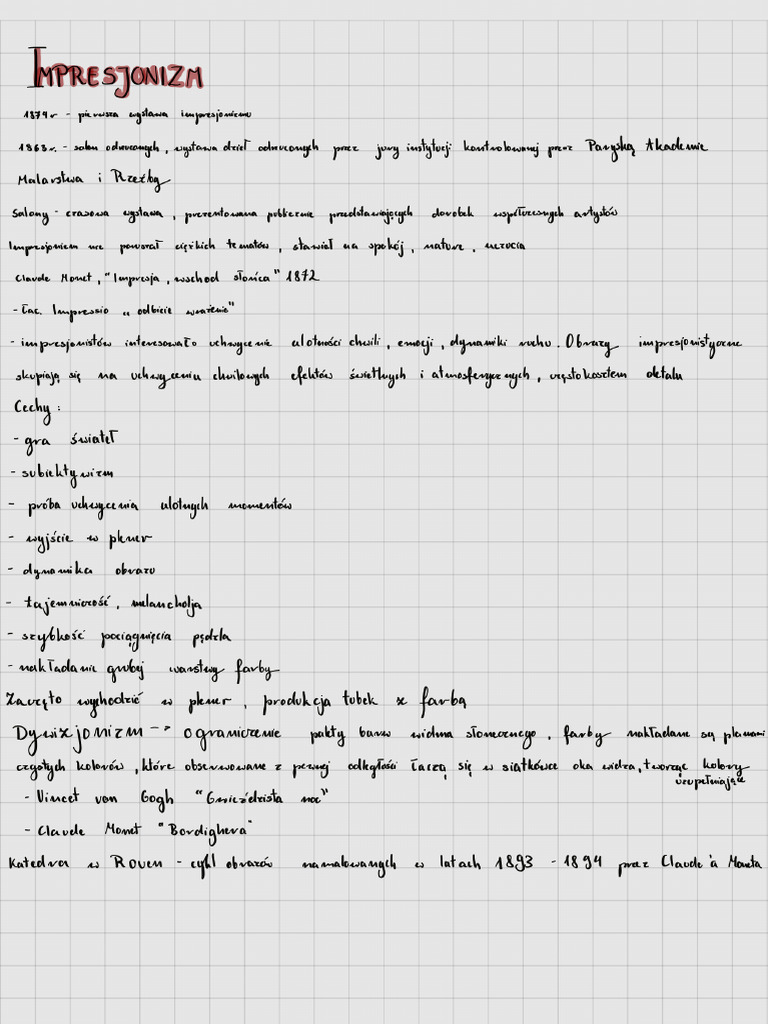 IMPRESJONIZM
1874r - pierwsza wystawa impresjonizmu
1863r. - salon odrzuconych, wystawa dzieł odrzuconych przez jury instytucji kontrolowanej przez Paryską Akademie
Malarstwa i Rzeźby
Salony - czasowa wystawa, prezentowana publicznie przedstawiających dorobek współczesnych artystów
Impresjonizm nie poruszał ciężkich tematów, stawiał na spokój, nature, uczucia
Claude Monet, "Impresja, wschod słońca" 1872
- łac. Impressio „odbicie wrażenie"
- impresjonistów interesowało uchwycenie ulotności chwili, emocji, dynamiki ruchu. Obrazy impresjonistyczne
skupiają się na uchwyceniu chwilowych efektów świetlnych i atmosferycznych, często kosztem detalu
Cechy:
- gra świateł
- subiektywizm
- próba uchwycenia ulotnych momentów
- wyjście w plener
- dynamika obrazu
- tajemniczość, melancholja
- szybkość pociągnięcia pędzla
- nakładanie grubej warstwy farby
Zaczęto wychodzić w plener, produkcja tubek z farbą
Dywizjonizm -> ograniczenie palety barw widma słonecznego, farby nakładane są plamami
czystych kolorów, które obserwowane z pewnej odległości łączą się w siatkówce oka widza, tworząc kolory
uzupełniające
- Vincet van Gogh "Gwieździsta noc"
- Claude Monet "Bordighera"
Katedra w Rouen - cykl obrazów namalowanych w latach 1893 - 1894 przez Claude'a Moneta